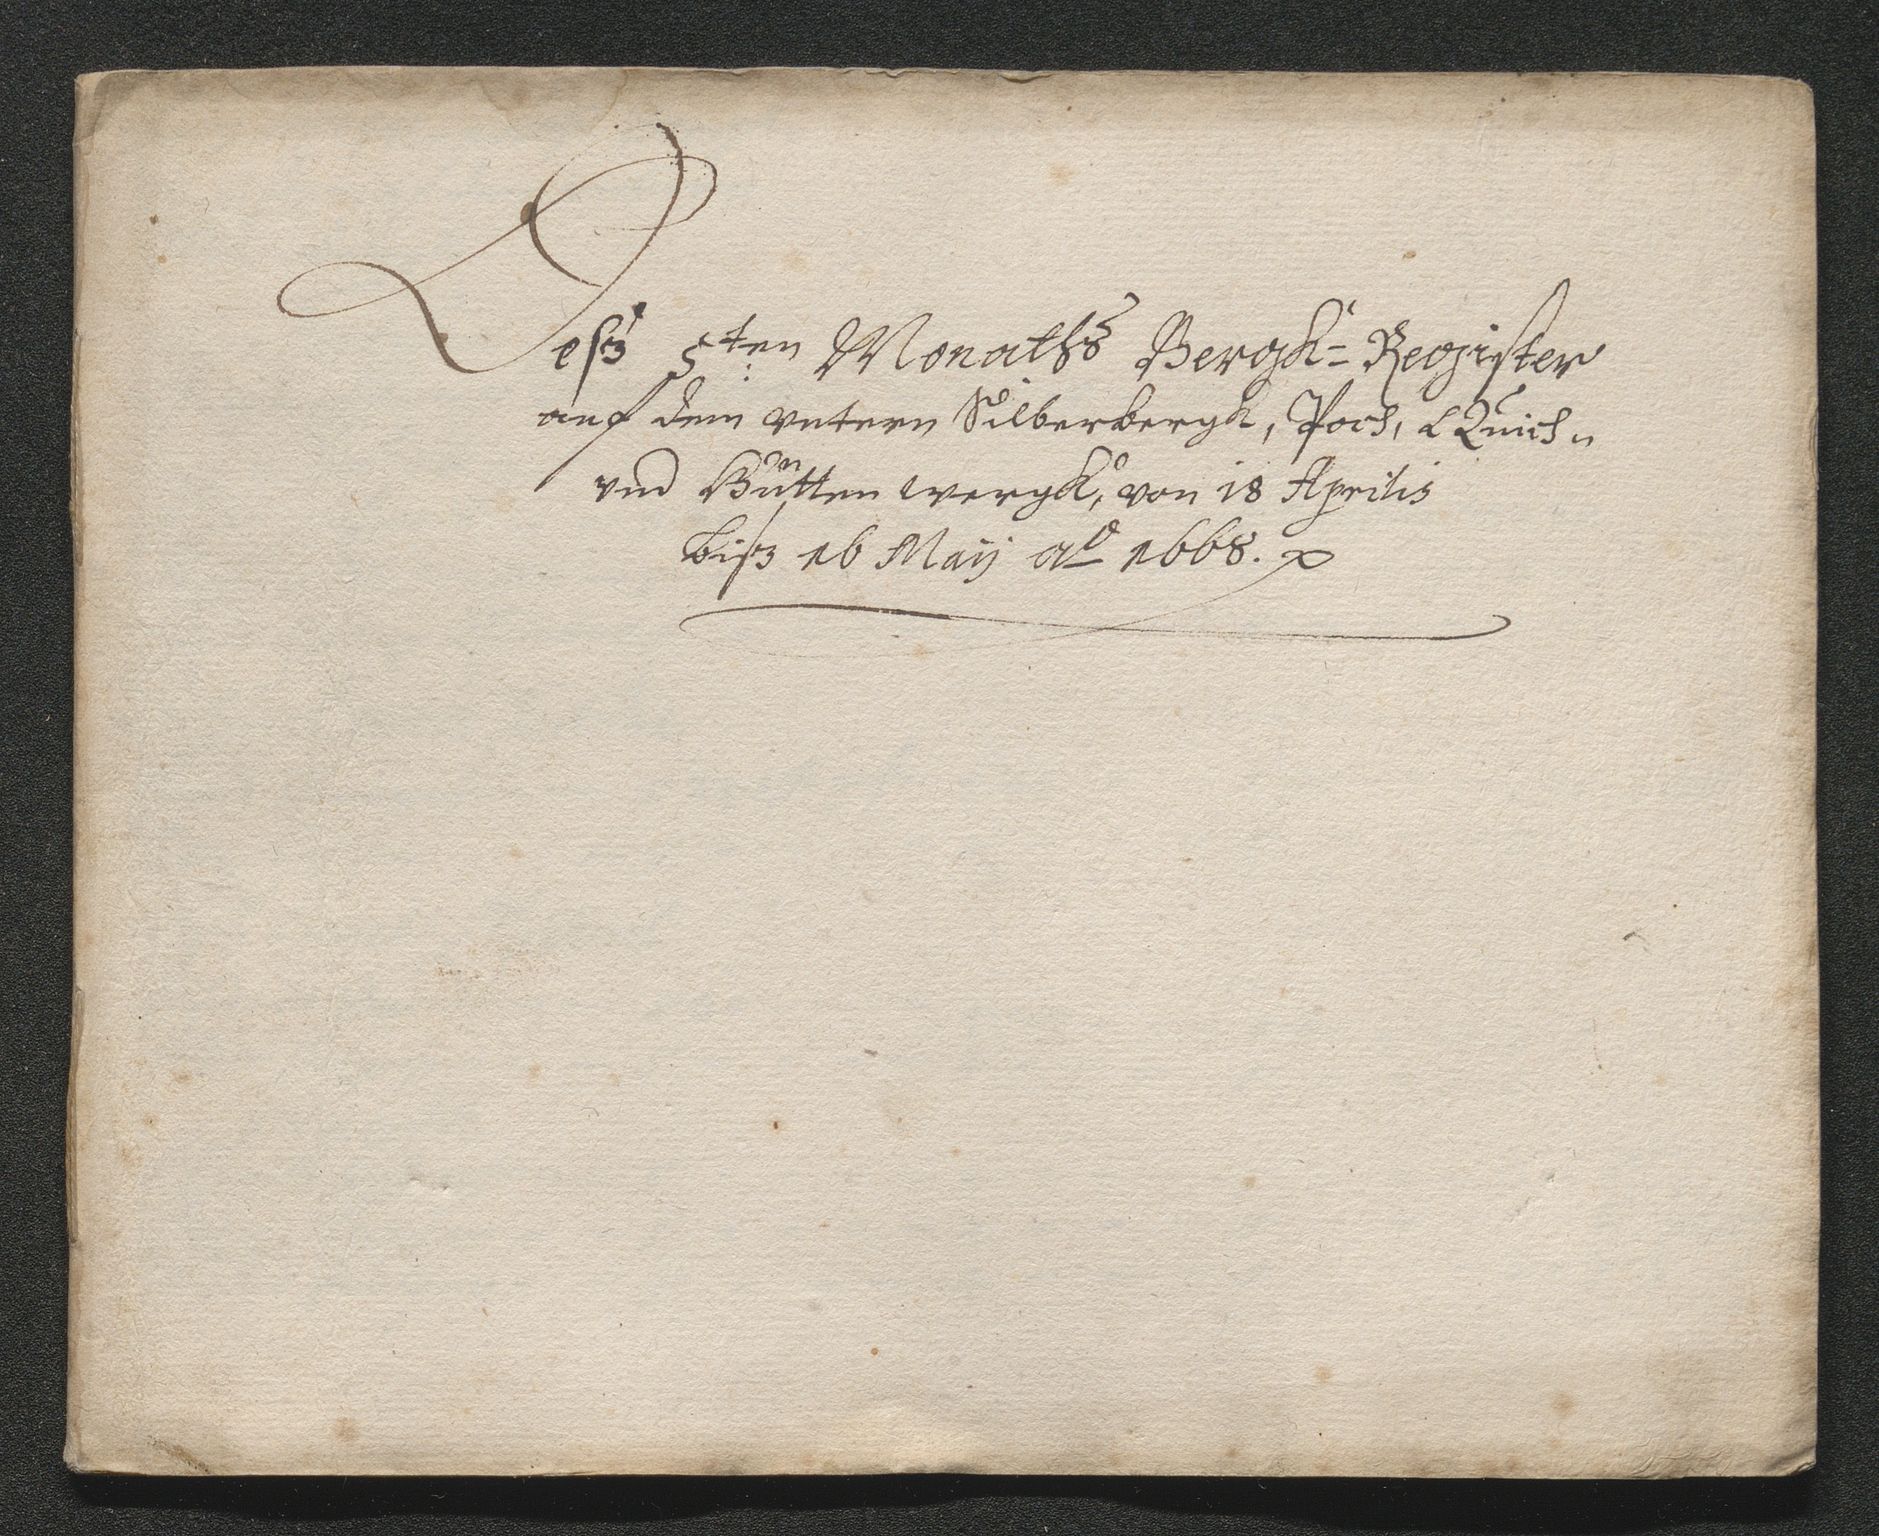 Deß 5ten Monaths Bergk- Register
auf dem vntern Silberbergk, Poch, Quick-
vnd Hüttenwergk, von 18 Aprilis
biß 16 Maij ao 1668.